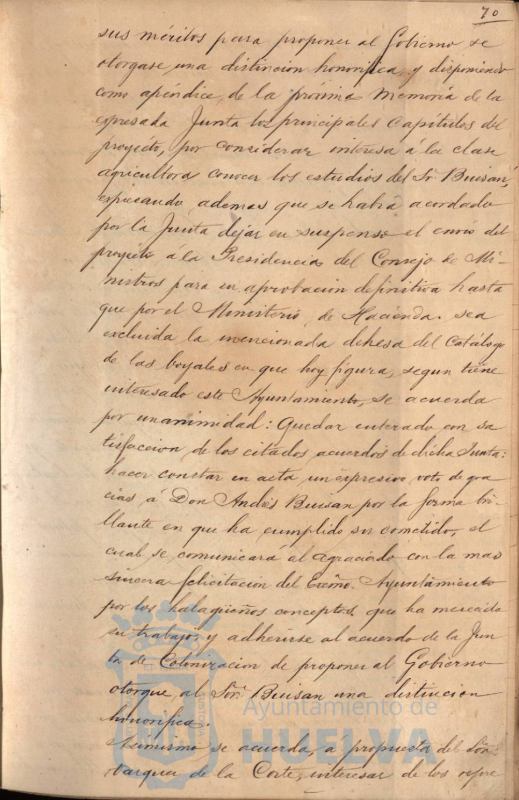 70
sus méritos para proponer al Gobierno se
otorgase una distincion honorifica, y disponiendo
como apéndice de la próxima Memoria de la
expresada Junta los principales Capitulos del
proyecto, por considerar interesa á la clase
agricultora conocer los estudios del Sr Buisan,
expresando ademas que se habrá acordado
por la Junta dejar en suspenso el envio del
proyecto a la Presidencia del Consejo de Mi-
nistros para su aprobacion definitiva hasta
que por el Ministerio de Hacienda sea
excluida la mencionada dehesa del Catálogo
de las boyales en que hoy figura, segun tiene
interesado este Ayuntamiento, se acuerda
por unanimidad: Quedar enterado con sa
tisfaccion de los citados acuerdos de dicha Junta:
hacer constar en acta un expresivo voto de gra
cias á Don Andrés Buisan por la forma bri-
llante en que ha cumplido su cometido, el
cual se comunicará al agraciado con la mas
sincera felicitacion del Excmo. Ayuntamiento
por los halagüeños conceptos que ha merecido
su trabajo; y adherirse al acuerdo de la Jun
ta de Colonizacion de proponer al Gobierno
otorgue al Sor. Buisan una distincion
honorifica.
Asimismo se acuerda, á propuesta del Sor.
Barquer de la Corte, interesar de los repre
Ayuntamiento de
HUELVA